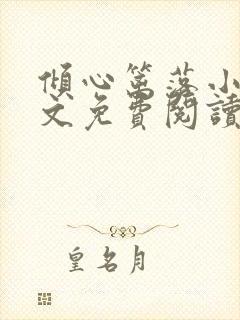 傾心篱落小
文免費閱讀
皇名月